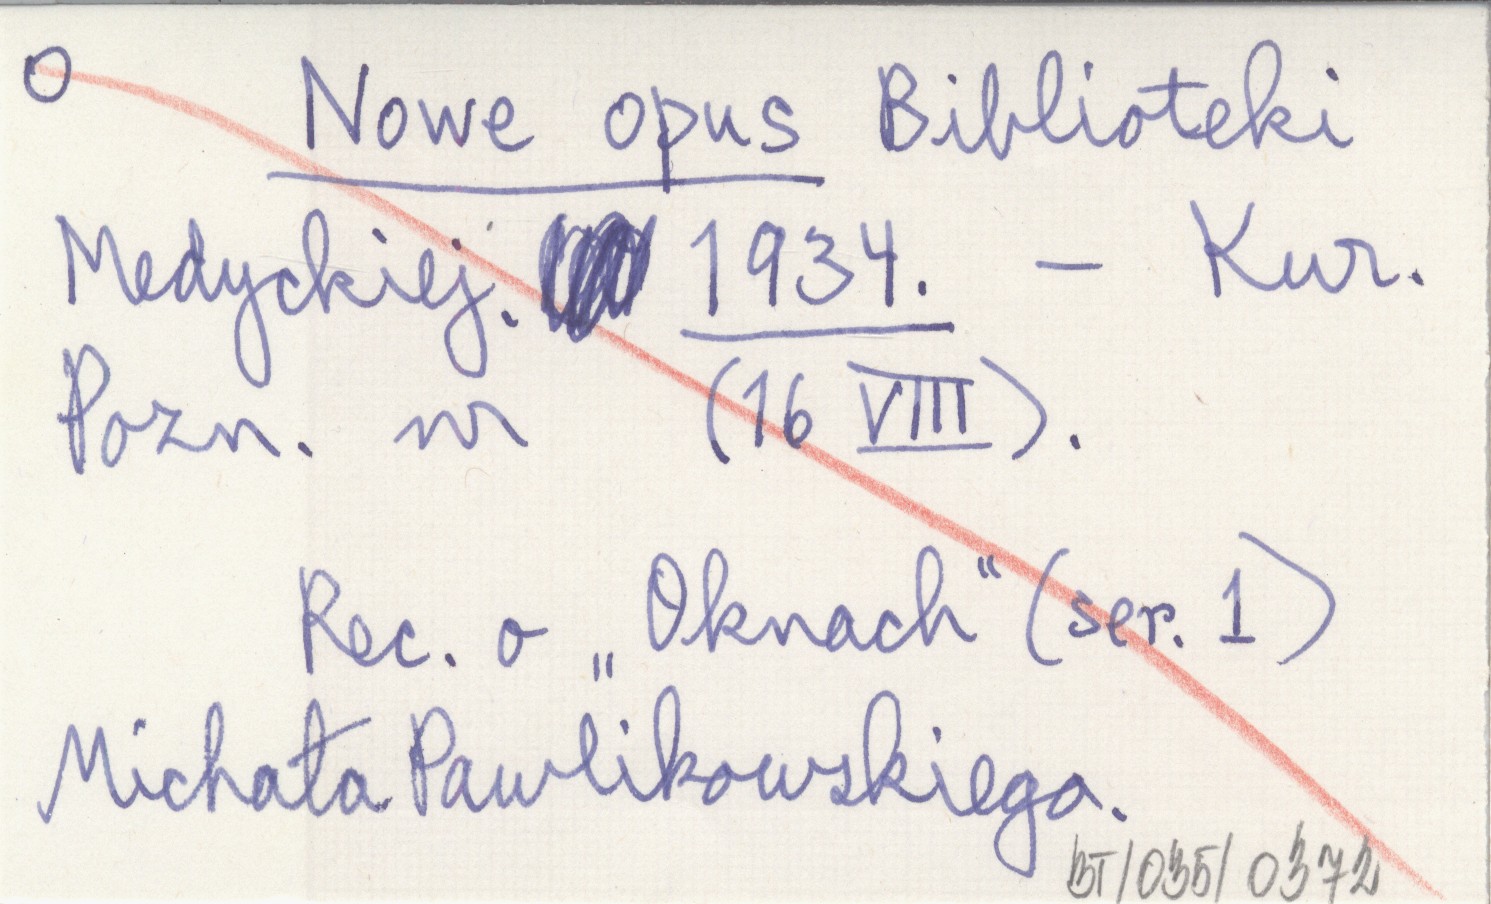 O Nowe opus Biblioteki
Medyckiej. 1934. – Kur.
Pozn. nr (16 VIII).
Rec. o „Oknach“ (ser. 1)
Michała Pawlikowskiego.
BT/035/0372